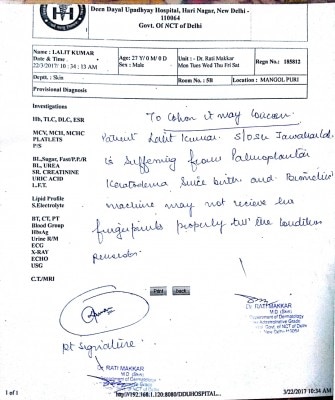 Deen Dayal Upadhyay Hospital, Hari Nagar, New Delhi -
110064
Govt. Of NCT of Delhi
Name : LALIT KUMAR
Date & Time :
22/3/2017 10 : 34 : 13 AM
Age: 27 Y/0 M/ 0 D
Sex : Male
Unit : - Dr. Rati Makkar
Mon Tues Wed Thu Fri Sat
Regn No.: 185812
Deptt. : Skin
Room No. : 5B
Location : MANGOL PURI
Provisional Diagnosis
Investigations
Hb, TLC, DLC, ESR
MCV, MCH, MCHC
PLATELETS
P/S
BL.Sugar, Fast/P.P./R
BL, UREA
SR. CREATININE
URIC ACID
L.F.T.
Lipid Profile
S.Electrolyte
BT, CT, PT
Blood Group
HbsAg
Urine R/M
ECG
X-RAY
ECHO
USG
C.T./MRI
To whom it may concern
Patient Lalit Kumar S/o Sh
is suffering from Palmoplantar
Keratoderma since birth and Biometric
machine may not receive his
fingerprints properly till the condition
persists.
Print back
pt signature :
Dr. RATI MAKKAR
M.D (Skin)
Department of Dermatology
Dr. RATI MAKKAR
M.D (Skin)
Department of Dermatology
Govt. of NCT of Delhi
New Delhi-110064
1 of 1
http://192.168.1.120:8080/DDUHOSPITAL...
3/22/2017 10:34 AM